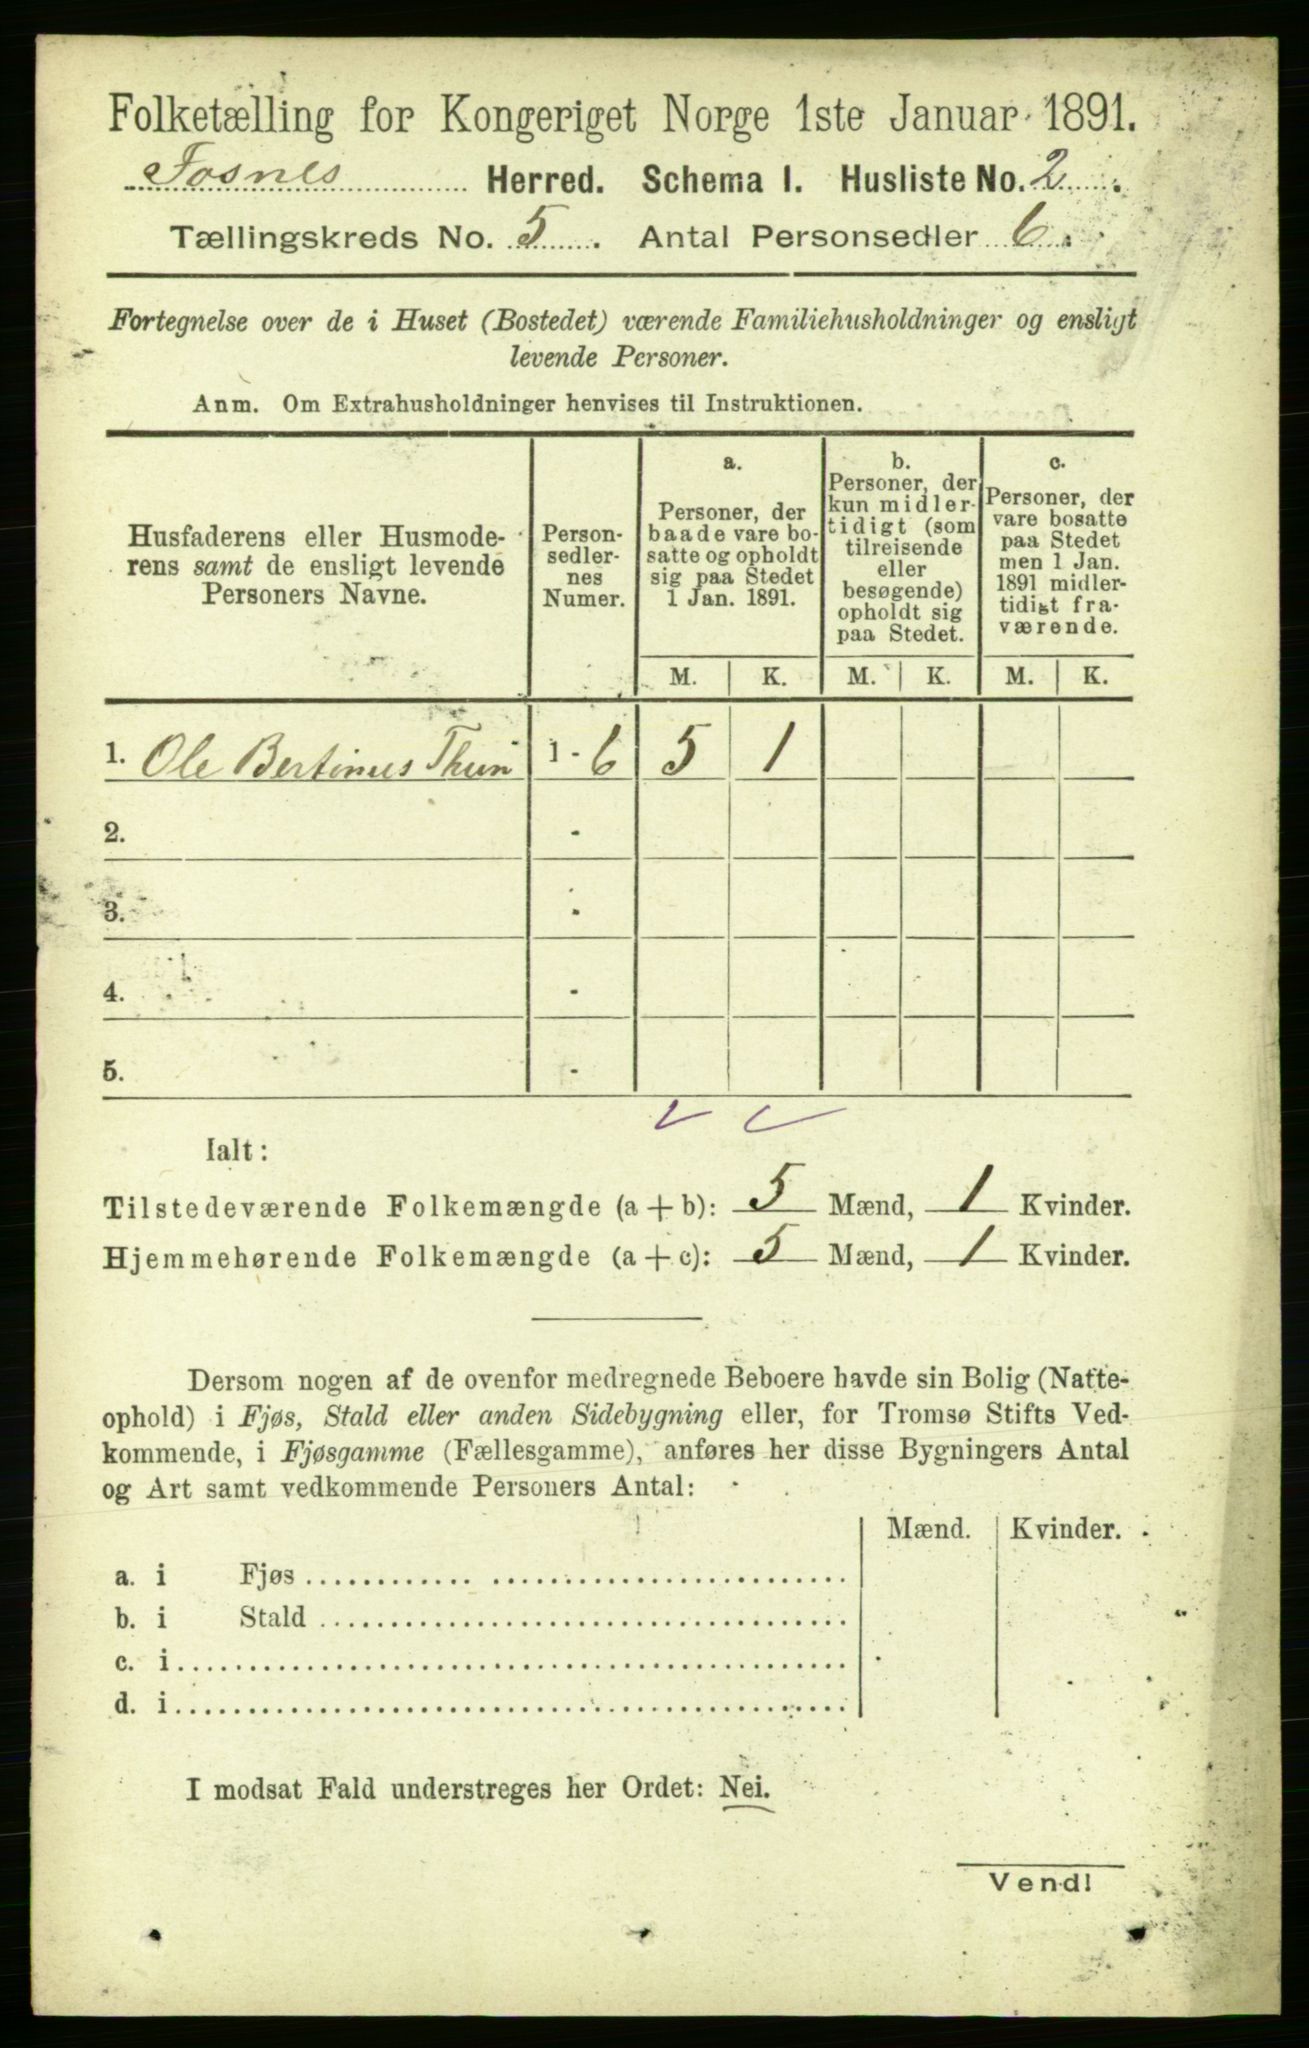 Folketælling for Kongeriget Norge 1ste Januar 1891.
Fosnes Herred. Schema I. Husliste No. 2.
Tællingskreds No. 5. Antal Personsedler 6.
Fortegnelse over de i Huset (Bostedet) værende Familiehusholdninger og ensligt
levende Personer.
Anm. Om Extrahusholdninger henvises til Instruktionen.
Husfaderens eller Husmode-
rens samt de ensligt levende
Personers Navne.
Person-
sedler-
nes
Numer.
a.
Personer, der
baade vare bo-
satte og opholdt
sig paa Stedet
1 Jan. 1891.
b.
Personer, der
kun midler-
tidigt (som
tilreisende
eller
besøgende)
opholdt sig
paa Stedet.
c.
Personer, der
vare bosatte
paa Stedet
men 1 Jan.
1891 midler-
tidigt fra-
værende.
M. K. M. K. M. K.
1. Ole Bertinus Thun 1 - 6 5 1
2. -
3. -
4. -
5. -
Ialt:
Tilstedeværende Folkemængde (a + b): 5 Mænd, 1 Kvinder.
Hjemmehørende Folkemængde (a + c): 5 Mænd, 1 Kvinder.
Dersom nogen af de ovenfor medregnede Beboere havde sin Bolig (Natte-
ophold) i Fjøs, Stald eller anden Sidebygning eller, for Tromsø Stifts Ved-
kommende, i Fjøsgamme (Fællesgamme), anføres her disse Bygningers Antal
og Art samt vedkommende Personers Antal:
Mænd. Kvinder.
a. i Fjøs
b. i Stald
c. i
d. i
I modsat Fald understreges her Ordet: Nei.
Vend!